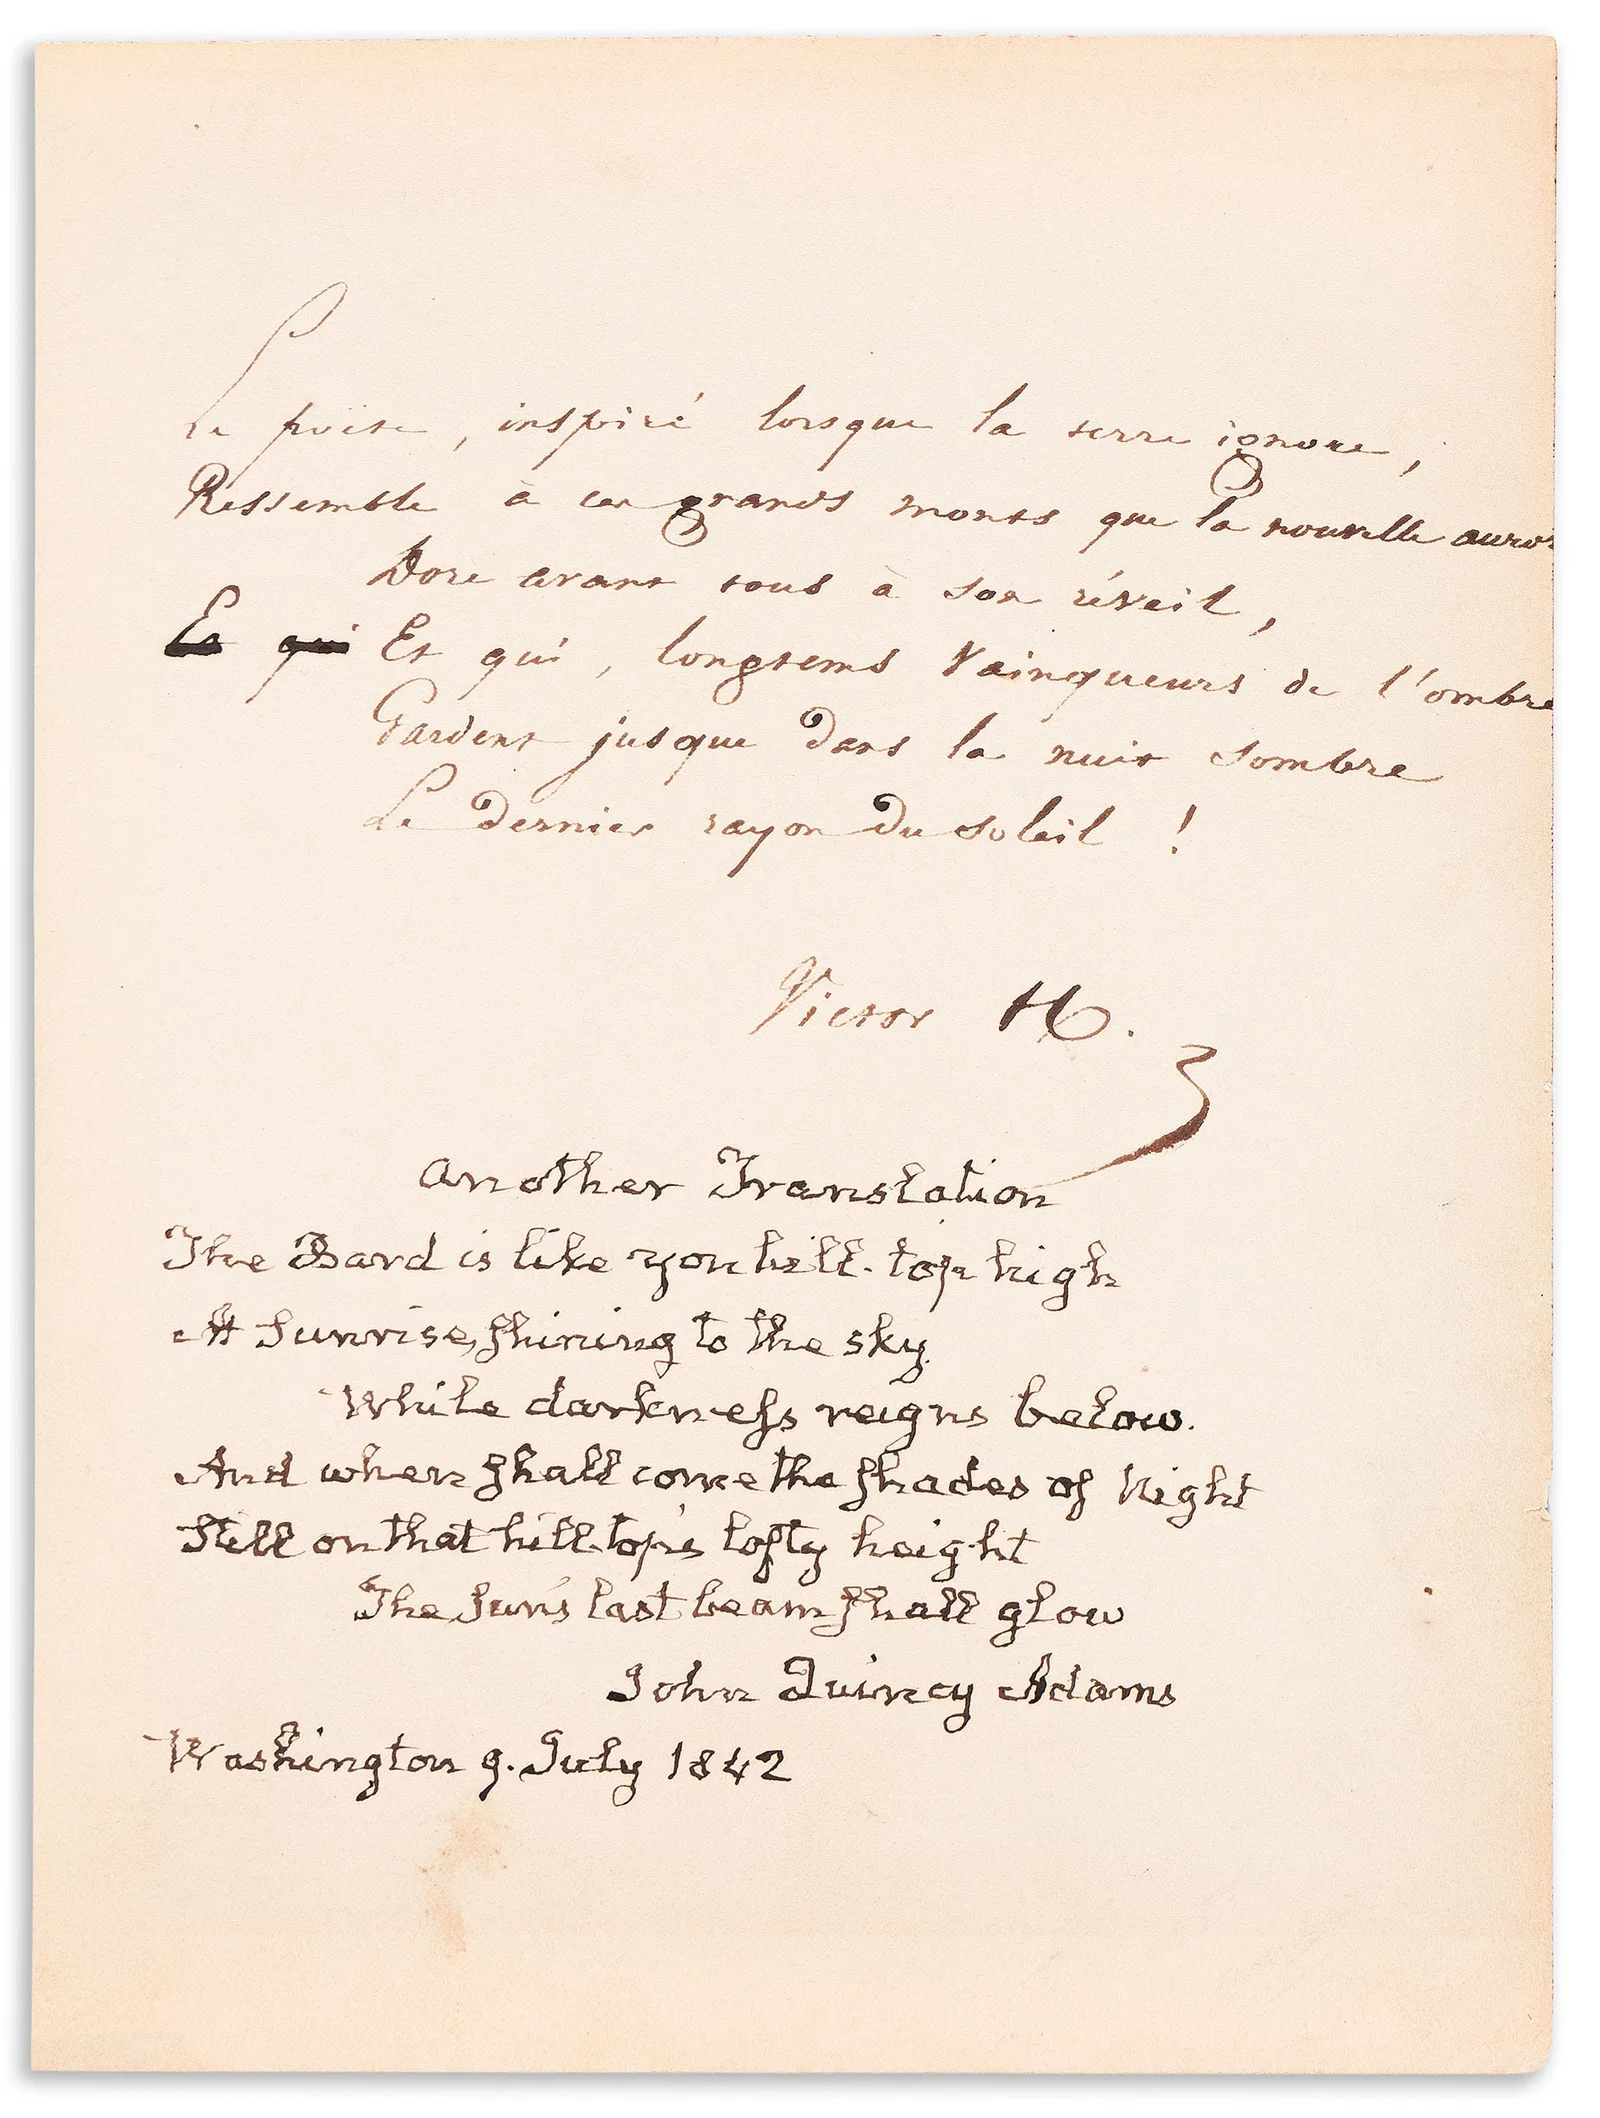 Le poëte, inspiré lorsque la terre ignore,
Ressemble à ces grands monts que la nouvelle auror
Dore avant tous à son réveil,
Et qui Et qui, longtems vainqueurs de l'ombre
Gardent jusque dans la nuit sombre
Le dernier rayon du soleil !
Victor H.
Another Translation
The Bard is like yon hill-top high
At Sunrise, shining to the sky.
While darkness reigns below.
And when shall come the shades of Night
Still on that hill-top's lofty height
The Sun's last beam shall glow
John Quincy Adams
Washington 9. July 1842